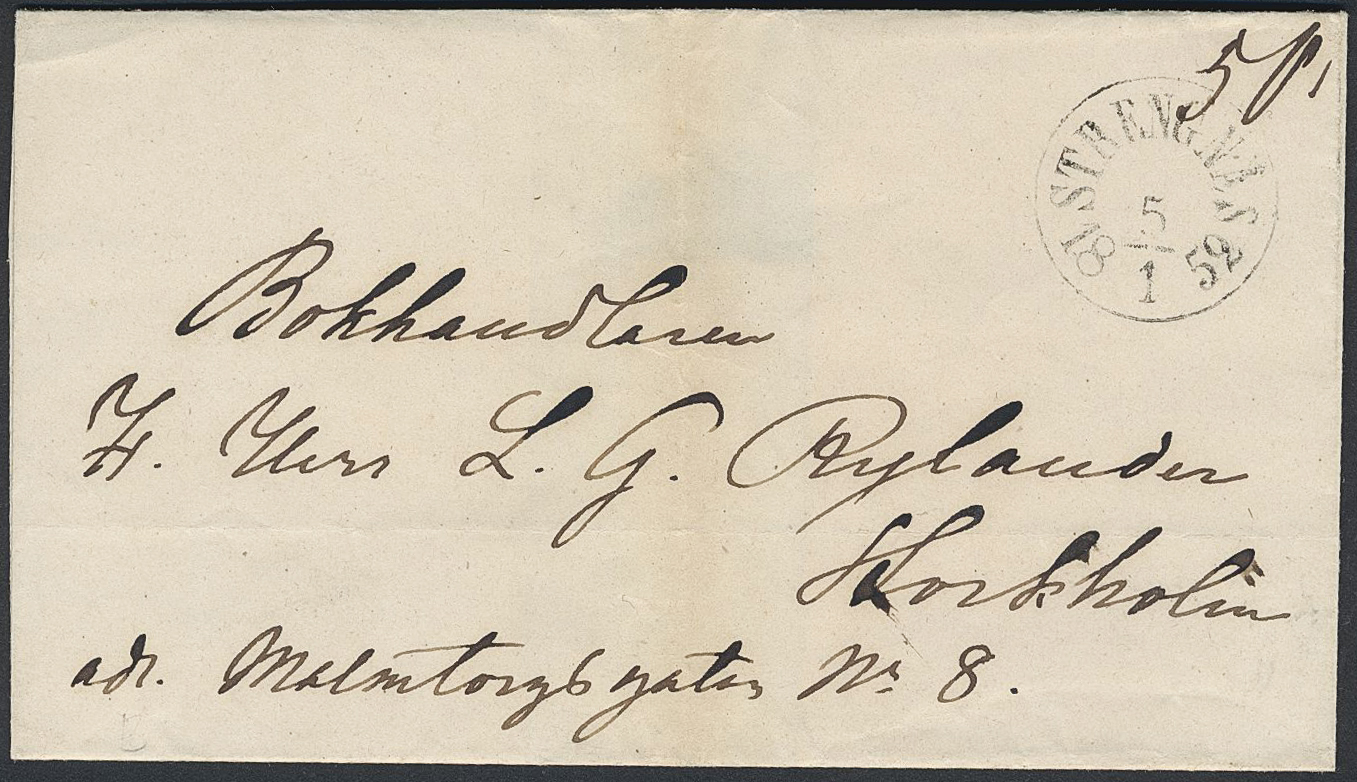 5 p.
STRENGNÄS
5
1
18 52
Bokhandlaren
H. Herr L. G. Rylander
Stockholm
adr. Malmtorgsgatan Nr 8.
B